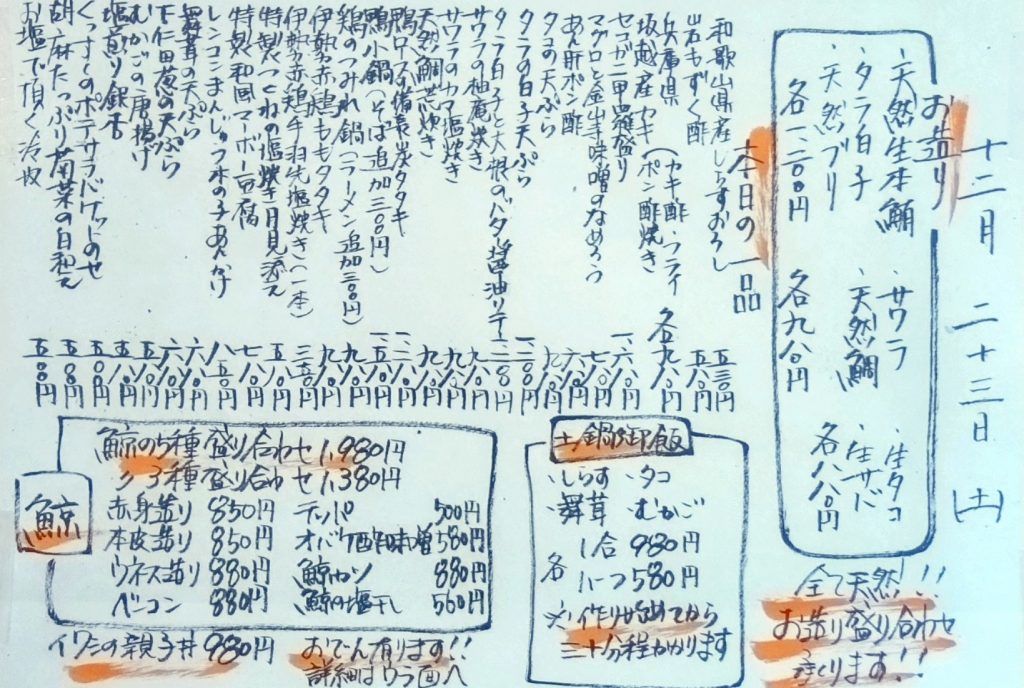 十二月 二十三日 (土)
お造り
・天然生本鮪
・タラ白子
・天然ブリ
各一、二〇〇円
・サワラ
・天然鯛
各九八〇円
・生タコ
・生サバ
各八八〇円
全て天然!!
お造り盛り合わせ
承ります!!
本日の一品
和歌山県産しらすおろし 五三〇円
岩もずく酢 五八〇円
兵庫県
坂越産カキ(カキ酢・フライ・ポン酢焼き 各九八〇円
セコガニ甲羅盛り 一、六八〇円
マグロと金山寺味噌のなめろう 七八〇円
あん肝ポン酢 六八〇円
タコの天ぷら 九八〇円
タラの白子天ぷら 一、二〇〇円
タラ白子と大根のバター醤油ソテー 一、二〇〇円
サワラの柚庵焼き 九八〇円
サワラのカマ塩焼き 九八〇円
天然鯛荒炊き 九八〇円
鴨ロースの備長炭タタキ
鴨小鍋(そば追加三〇〇円)
鶏のつみれ鍋(ラーメン追加三〇〇円)
伊勢赤鶏ももタタキ 九八〇円
伊勢赤鶏手羽先塩焼き(一本) 三五〇円
特製つくねの塩焼き月見添え
特製和風マーボー豆腐
レンコンまんじゅうきの子あんかけ 八五〇円
舞茸の天ぷら 六八〇円
下仁田葱の天ぷら 六八〇円
むかごの唐揚げ 五八〇円
塩煎り銀杏
くんさきのポテサラバゲットのせ 五八〇円
胡麻たっぷり菊菜の白和え 五八〇円
お塩で頂く冷奴 五〇〇円
鯨
鯨の5種盛り合わせ 1,980円
〃 3種盛り合わせ 1,380円
赤身造り 850円 テッパ 500円
本皮造り 850円 オバケ酢味噌 580円
ウネス造り 880円 鯨カツ 880円
ベーコン 880円 鯨の塩干し 560円
イワシの親子丼 980円
おでん有ります!!
詳細はウラ面へ
土鍋御飯
・しらす ・タコ
・舞茸 ・むかご
各 1合 980円
ハーフ 580円
※作り始めてから
三十分程かかります